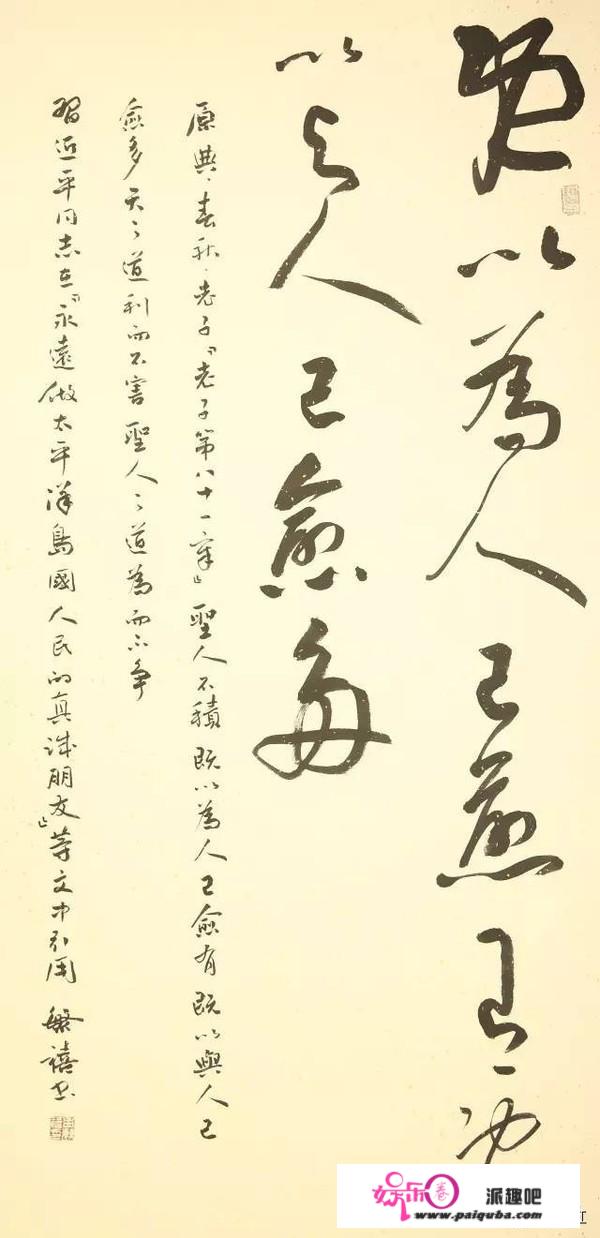 既以為人己愈有既
以與人己愈多
原典·春秋·老子『老子第八十一章』聖人不積既以為人己愈有既以與人己
愈多天之道利而不害聖人之道為而不爭
習近平同志在『永遠做太平洋島國人民的真誠朋友』等文中引用 繁禧書
娱乐卷
派趣吧
www.paiquba.com